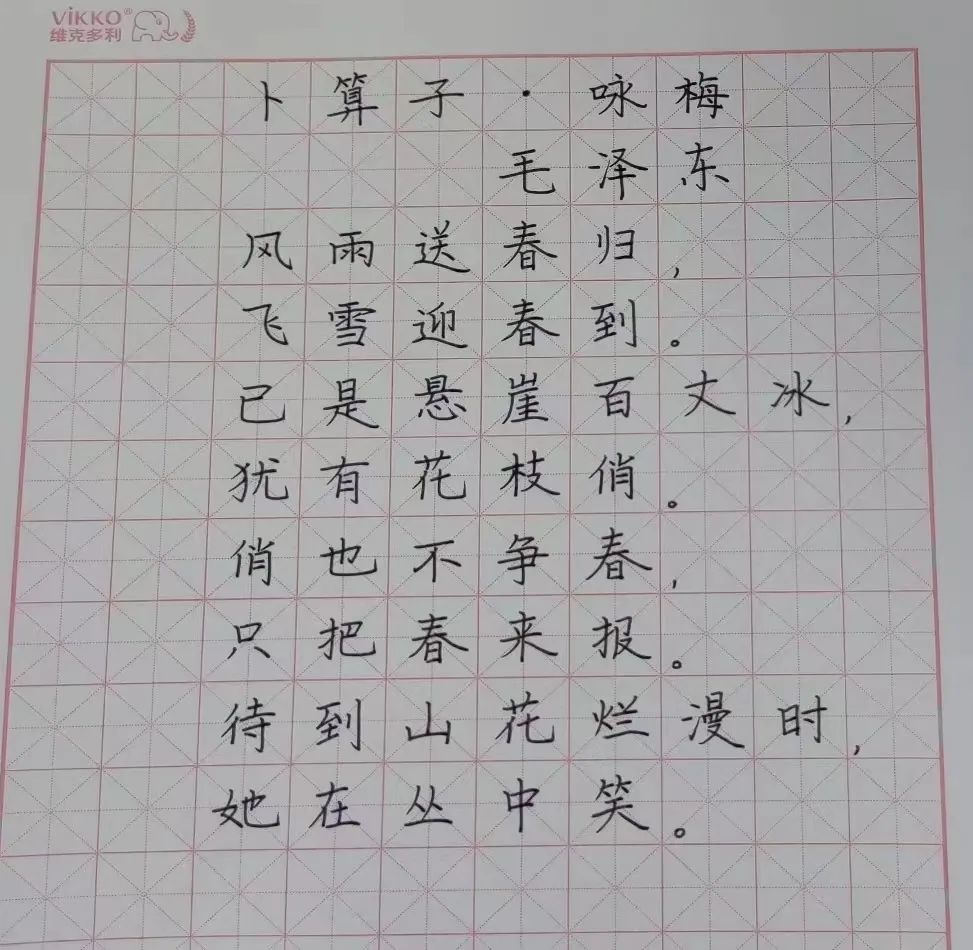 VIKKO®
维克多利
卜算子·咏梅
毛泽东
风雨送春归，
飞雪迎春到。
已是悬崖百丈冰，
犹有花枝俏。
俏也不争春，
只把春来报。
待到山花烂漫时，
她在丛中笑。